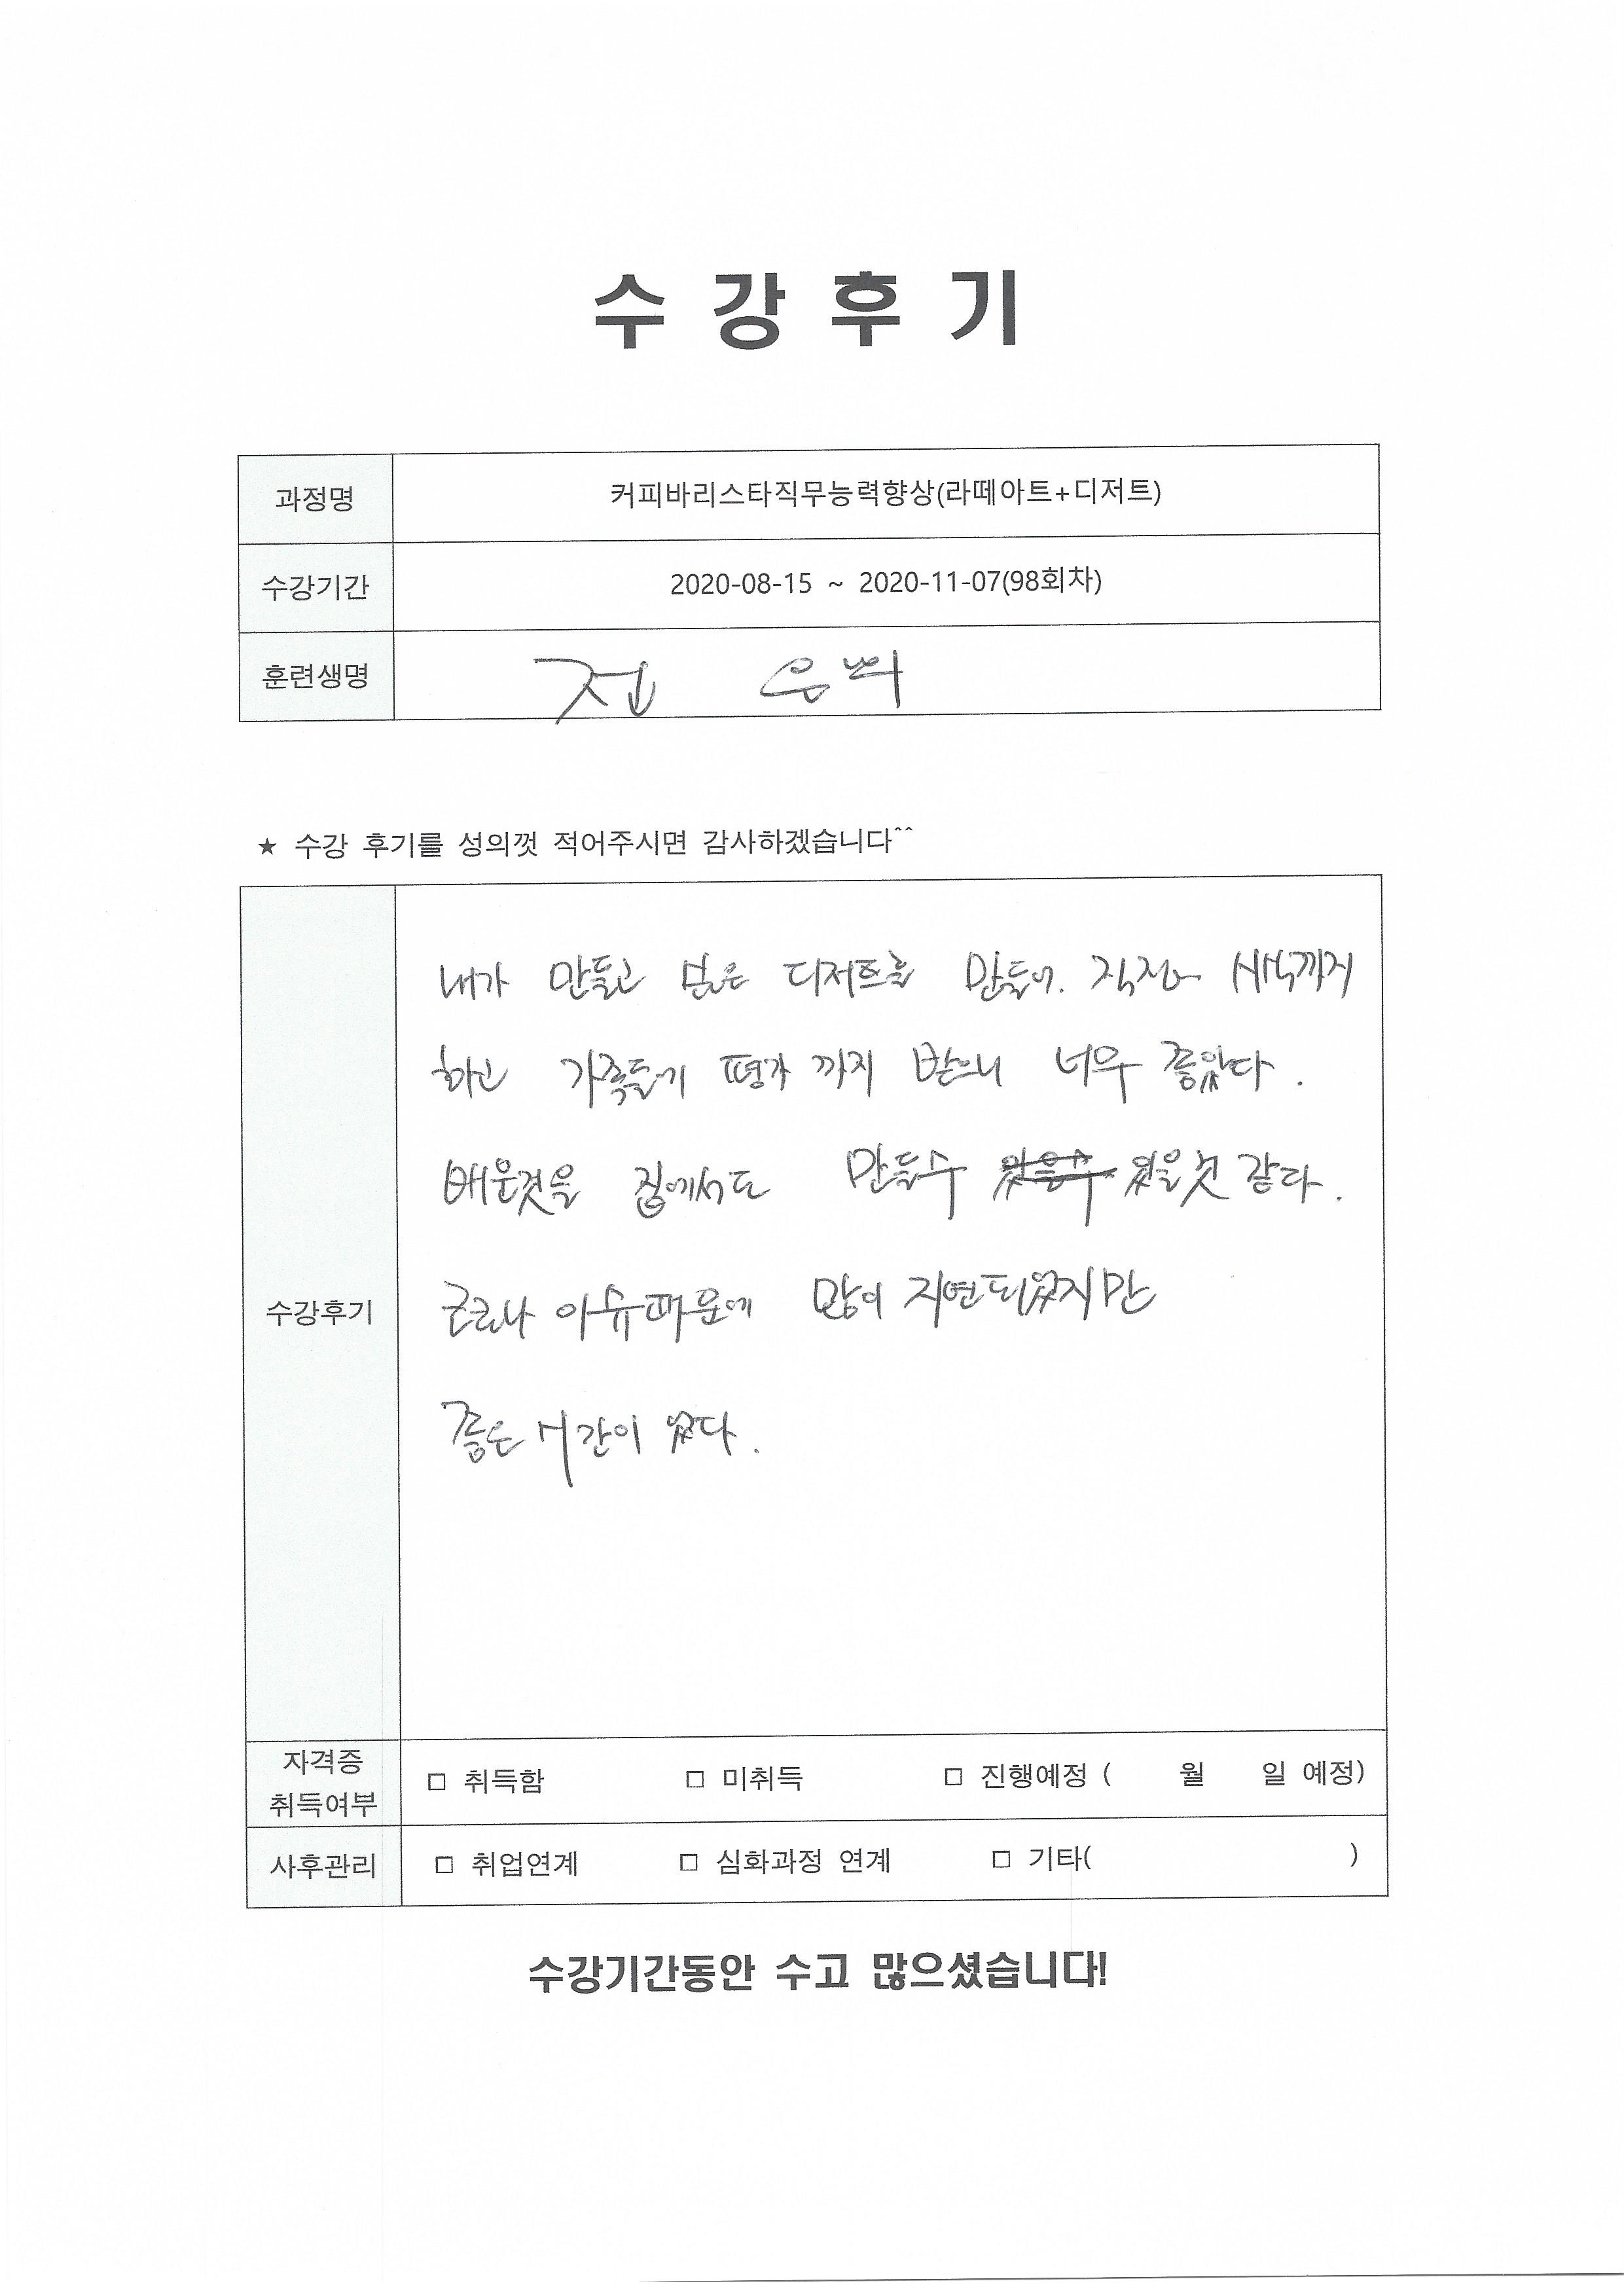 수강후기
과정명 커피바리스타직무능력향상(라떼아트+디저트)
수강기간 2020-08-15 ~ 2020-11-07(98회차)
훈련생명
★ 수강 후기를 성의껏 적어주시면 감사하겠습니다^^
내가 만들고 싶은 디저트를 만들어. 직접 시식까지
하고 가족들이 평가 까지 받으니 너무 좋았다.
배운것을 집에서도 만들수 있을것 같다.
코로나 이슈때문에 많이 지연되었지만
수강후기
좋은 시간이 었다.
자격증
취득여부
□ 취득함 □ 미취득 □ 진행예정 ( 월 일 예정)
사후관리 □ 취업연계 □ 심화과정 연계 □ 기타( )
수강기간동안 수고 많으셨습니다!